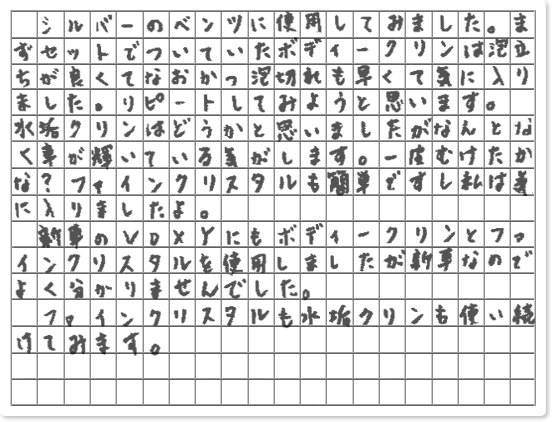 シルバーのベンツに使用してみました。ま
ずセットでついていたボディークリンは泡立
ちが良くてなおかつ泡切れも早くて気に入り
ました。リピートしてみようと思います。
水垢クリンはどうかと思いましたがなんとな
く車が輝いている気がします。一皮むけたか
な?ファインクリスタルも簡単ですし私は気
に入りましたよ。
新車のVOXYにもボディークリンとファ
インクリスタルを使用しましたが新車なので
よく分かりませんでした。
ファインクリスタルも水垢クリンも使い続
けてみます。